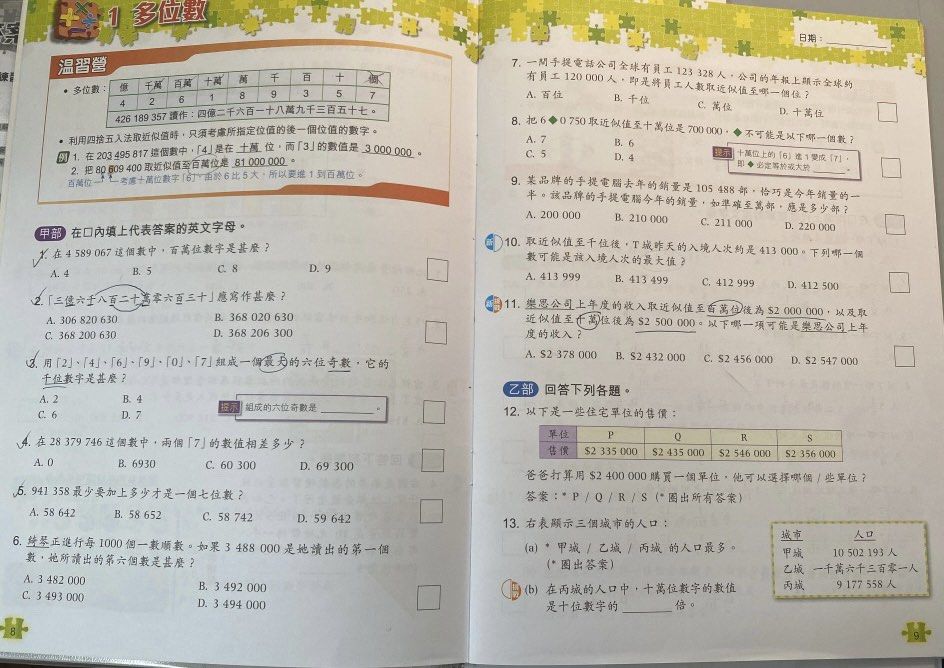 1 多位數
溫習營
• 多位數：
億 千萬 百萬 十萬 萬 千 百 十 個
4 2 6 1 8 9 3 5 7
426 189 357 讀作：四億二千六百一十八萬九千三百五十七。
• 利用四捨五入法取近似值時，只須考慮所指定位值的後一個位值的數字。
例 1. 在 203 495 817 這個數中，「4」是在 十萬 位，而「3」的數值是 3 000 000 。
2. 把 80 609 400 取近似值至百萬位是 81 000 000 。
百萬位 考慮十萬位數字「6」，由於 6 比 5 大，所以要進 1 到百萬位。
甲部 在口內填上代表答案的英文字母。
1. 在 4 589 067 這個數中，百萬位數字是甚麼？
A. 4 B. 5 C. 8 D. 9
2. 「三億六千八百二十萬零六百三十」應寫作甚麼？
A. 306 820 630 B. 368 020 630
C. 368 200 630 D. 368 206 300
3. 用「2」、「4」、「6」、「9」、「0」、「7」組成一個最大的六位奇數，它的
千位數字是甚麼？
A. 2 B. 4
C. 6 D. 7
提示 組成的六位奇數是 ________ 。
4. 在 28 379 746 這個數中，兩個「7」的數值相差多少？
A. 0 B. 6930 C. 60 300 D. 69 300
5. 941 358 最少要加上多少才是一個七位數？
A. 58 642 B. 58 652 C. 58 742 D. 59 642
6. 綺琴正進行每 1000 個一數順數。如果 3 488 000 是她讀出的第一個
數，她所讀出的第六個數是甚麼？
A. 3 482 000 B. 3 492 000
C. 3 493 000 D. 3 494 000
8
日期：
7. 一間手提電話公司全球有員工 123 328 人，公司的年報上顯示全球約
有員工 120 000 人，即是將員工人數取近似值至哪一個位？
A. 百位 B. 千位 C. 萬位 D. 十萬位
8. 把 6◆0 750 取近似值至十萬位是 700 000，◆ 不可能是以下哪一個數？
A. 7 B. 6
C. 5 D. 4
提示 十萬位上的「6」進 1 變成「7」，
即 ◆ 必定等於或大於 ________ 。
9. 某品牌的手提電腦去年的銷量是 105 488 部，恰巧是今年銷量的一
半。該品牌的手提電腦今年的銷量，如準確至萬部，應是多少部？
A. 200 000 B. 210 000 C. 211 000 D. 220 000
10. 取近似值至千位後，T 城昨天的入境人次約是 413 000。下列哪一個
數可能是該入境人次的最大值？
A. 413 999 B. 413 499 C. 412 999 D. 412 500
11. 樂思公司上年度的收入取近似值至百萬位後為 $2 000 000，以及取
近似值至十萬位後為 $2 500 000。以下哪一項可能是樂思公司上年
度的收入？
A. $2 378 000 B. $2 432 000 C. $2 456 000 D. $2 547 000
乙部 回答下列各題。
12. 以下是一些住宅單位的售價：
單位 P Q R S
售價 $2 335 000 $2 435 000 $2 546 000 $2 356 000
爸爸打算用 $2 400 000 購買一個單位，他可以選擇哪個 / 些單位？
答案：* P / Q / R / S (* 圈出所有答案)
13. 右表顯示三個城市的人口：
(a) * 甲城 / 乙城 / 丙城 的人口最多。
(* 圈出答案)
(b) 在丙城的人口中，十萬位數字的數值
是十位數字的 ________ 倍。
城市 人口
甲城 10 502 193 人
乙城 一千萬六千三百零一人
丙城 9 177 558 人
9